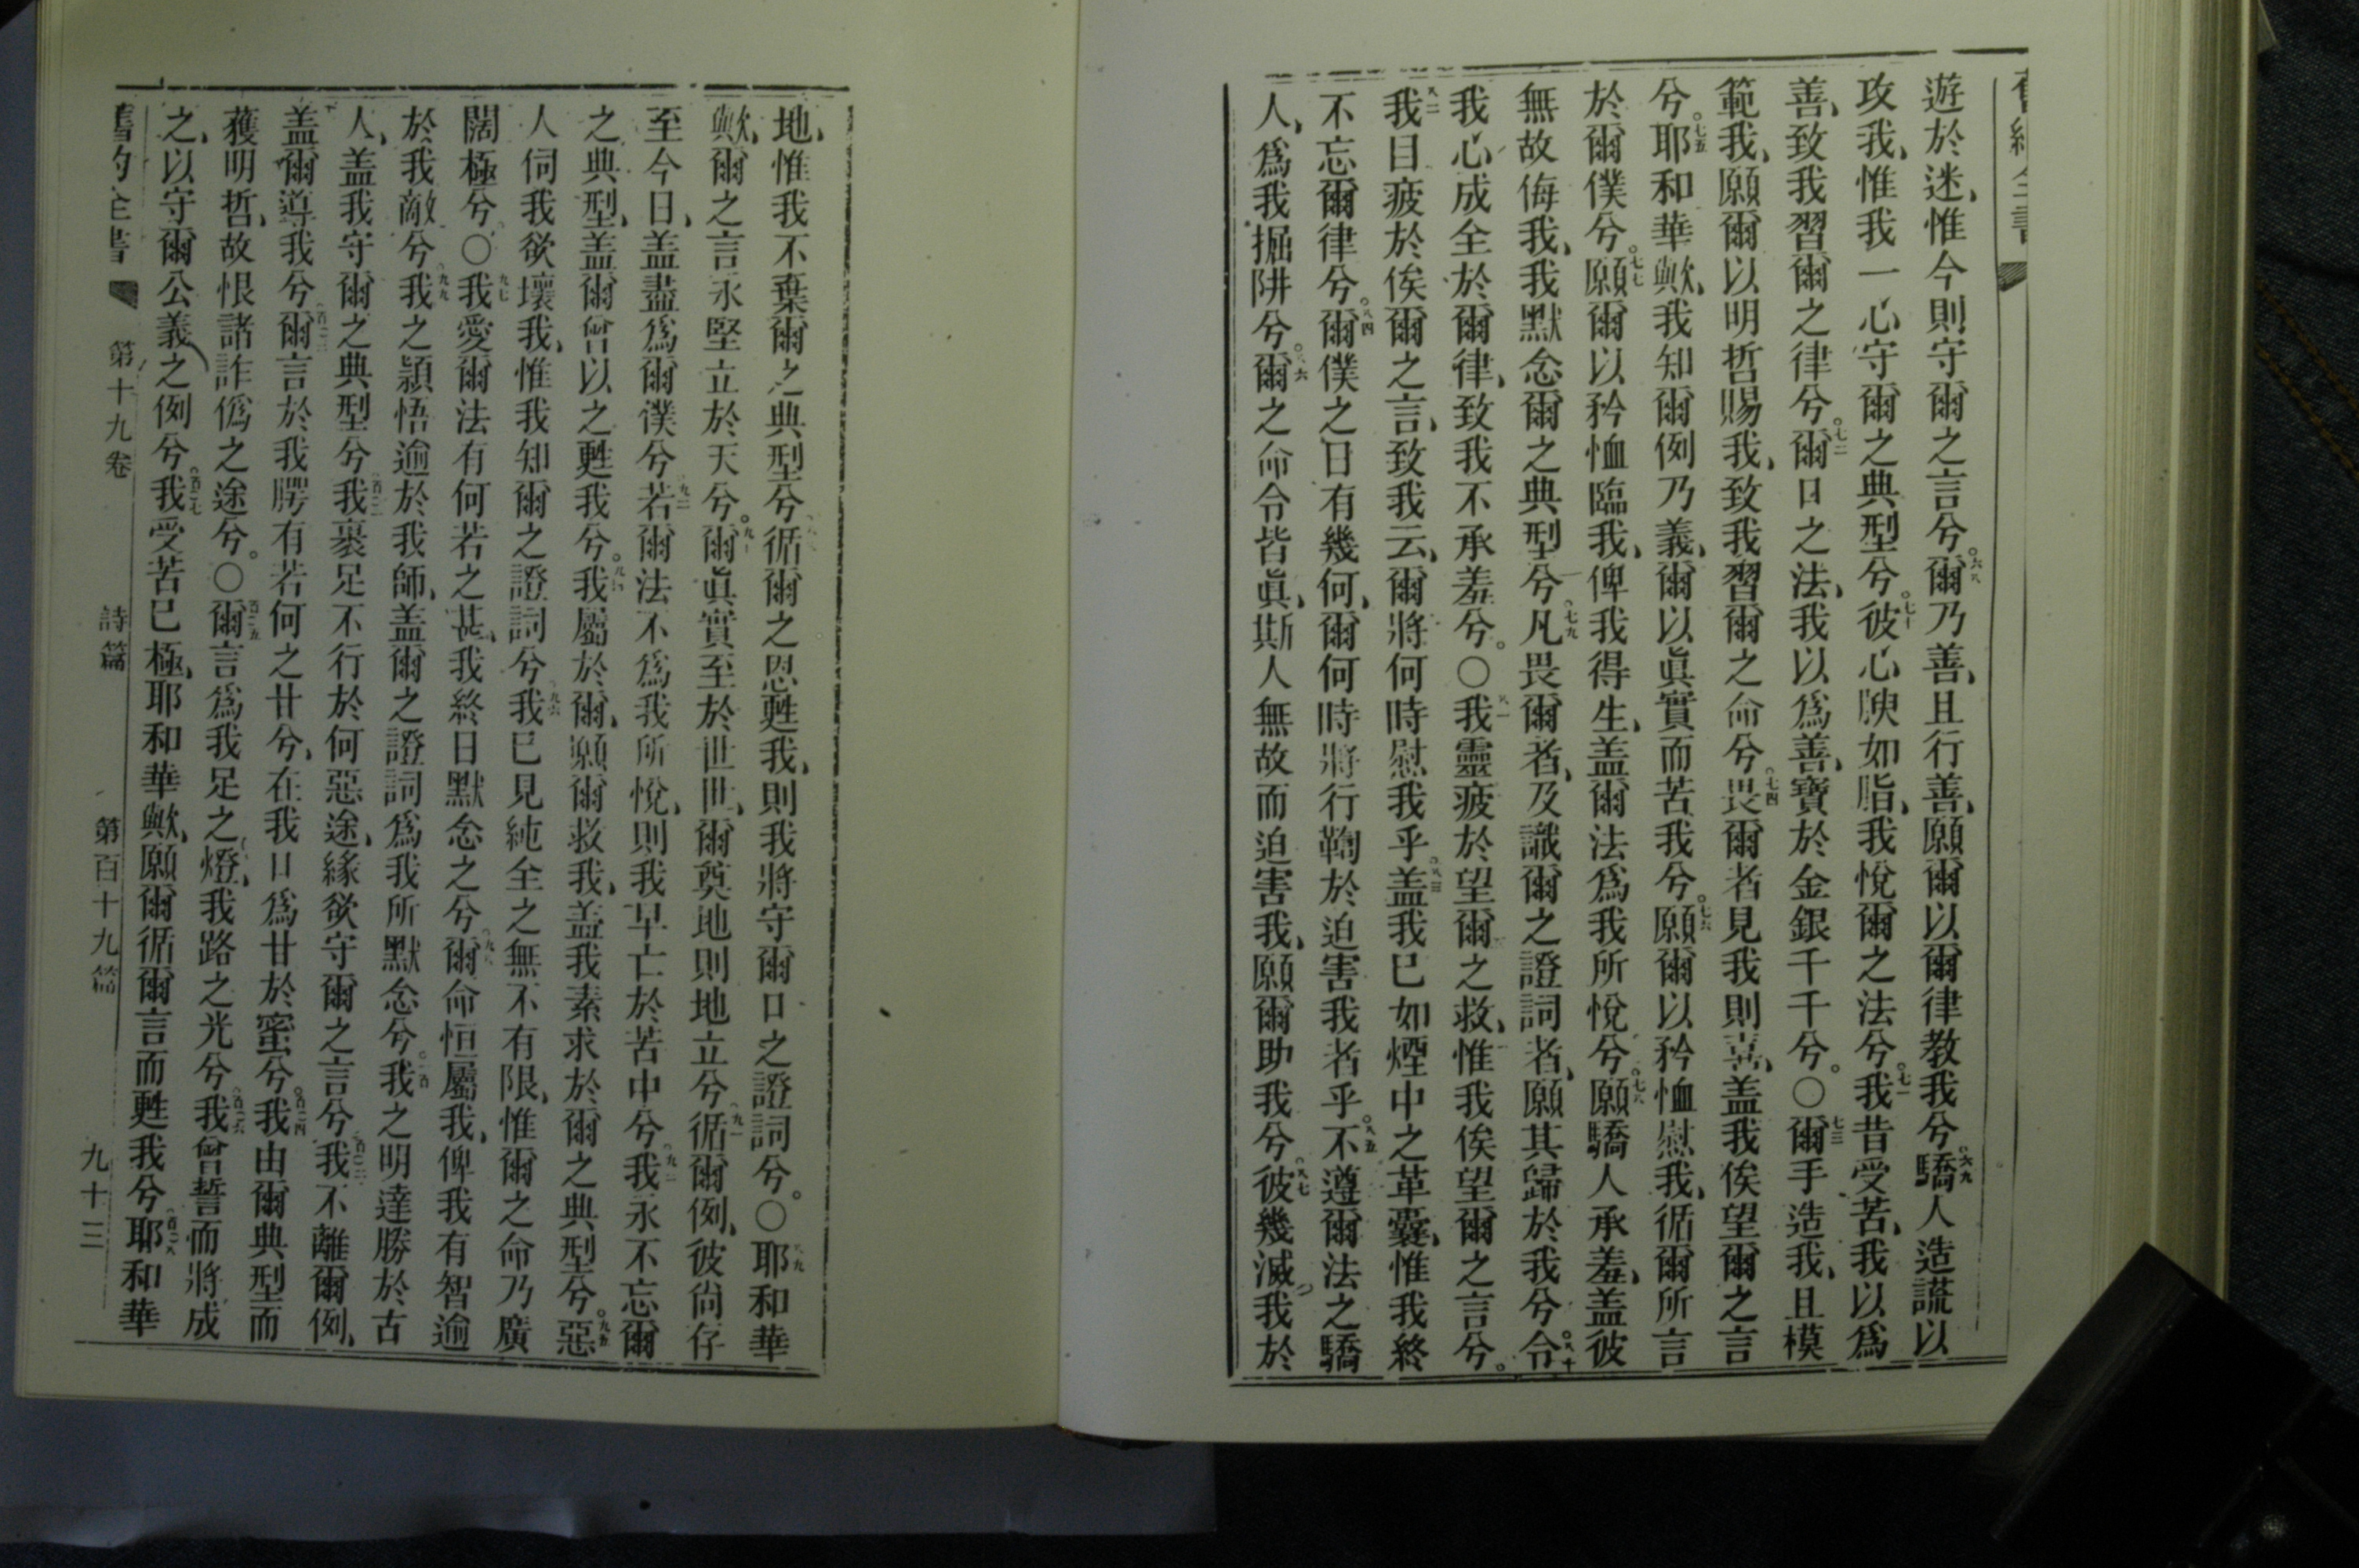 遊於迷、惟今則守爾之言兮。六八爾乃善、且行善、願爾以爾律教我兮。六九驕人造謊以
攻我、惟我一心守爾之典型兮。七十彼心腴如脂、我悅爾之法兮。七一我昔受苦、我以爲
善、致我習爾之律兮。七二爾口之法、我以爲善、寶於金銀千千兮。〇七三爾手造我、且模
範我、願爾以明哲賜我、致我習爾之命兮。七四畏爾者見我則喜、盖我俟望爾之言
兮。七五耶和華歟、我知爾例乃義、爾以眞實而苦我兮。七六願爾以矜恤慰我、循爾所言
於爾僕兮。七七願爾以矜恤臨我、俾我得生、盖爾法爲我所悅兮。七八願驕人承羞、盖彼
無故侮我、我默念爾之典型兮。七九凡畏爾者、及識爾之證詞者、願其歸於我兮。八十令
我心成全於爾律、致我不承羞兮。〇八一我靈疲於望爾之救、惟我俟望爾之言兮。
八二我目疲於俟爾之言、致我云、爾將何時慰我乎。八三盖我已如煙中之革囊、惟我終
不忘爾律兮。八四爾僕之日有幾何、爾何時將行鞫於迫害我者乎。八五不遵爾法之驕
人、爲我掘阱兮。八六爾之命令皆眞、斯人無故而迫害我、願爾助我兮。八七彼幾滅我於
地、惟我不棄爾之典型兮。循爾之恩甦我、則我將守爾口之證詞兮。〇八九耶和華
歟、爾之言永堅立於天兮。九十爾眞實至於世世、爾奠地則地立兮。九一循爾例、彼尙存
至今日、盖盡爲爾僕兮。九二若爾法不爲我所悅、則我早亡於苦中兮。九三我永不忘爾
之典型、盖爾曾以之甦我兮。九四我屬於爾、願爾救我、盖我素求於爾之典型兮。九五惡
人伺我欲壞我、惟我知爾之證詞兮。九六我已見純全之無不有限、惟爾之命乃廣
闊極兮。〇九七我愛爾法有何若之甚、我終日默念之兮。九八爾命恒屬我、俾我有智逾
於我敵兮。九九我之頴悟逾於我師、盖爾之證詞爲我所默念兮。一百我之明達勝於古
人、盖我守爾之典型兮。百〇一我裹足不行於何惡途、緣欲守爾之言兮。百〇二我不離爾例、
盖爾導我兮。百〇三爾言於我腭有若何之甘兮、在我口爲甘於蜜兮。百〇四我由爾典型而
獲明哲、故恨諸詐僞之途兮。〇百〇五爾言爲我足之燈、我路之光兮。百〇六我曾誓而將成
之、以守爾公義之例兮。百〇七我受苦已極、耶和華歟、願爾循爾言而甦我兮。百〇八耶和華
舊約全書 第十九卷 詩篇 第百十九篇 九十三